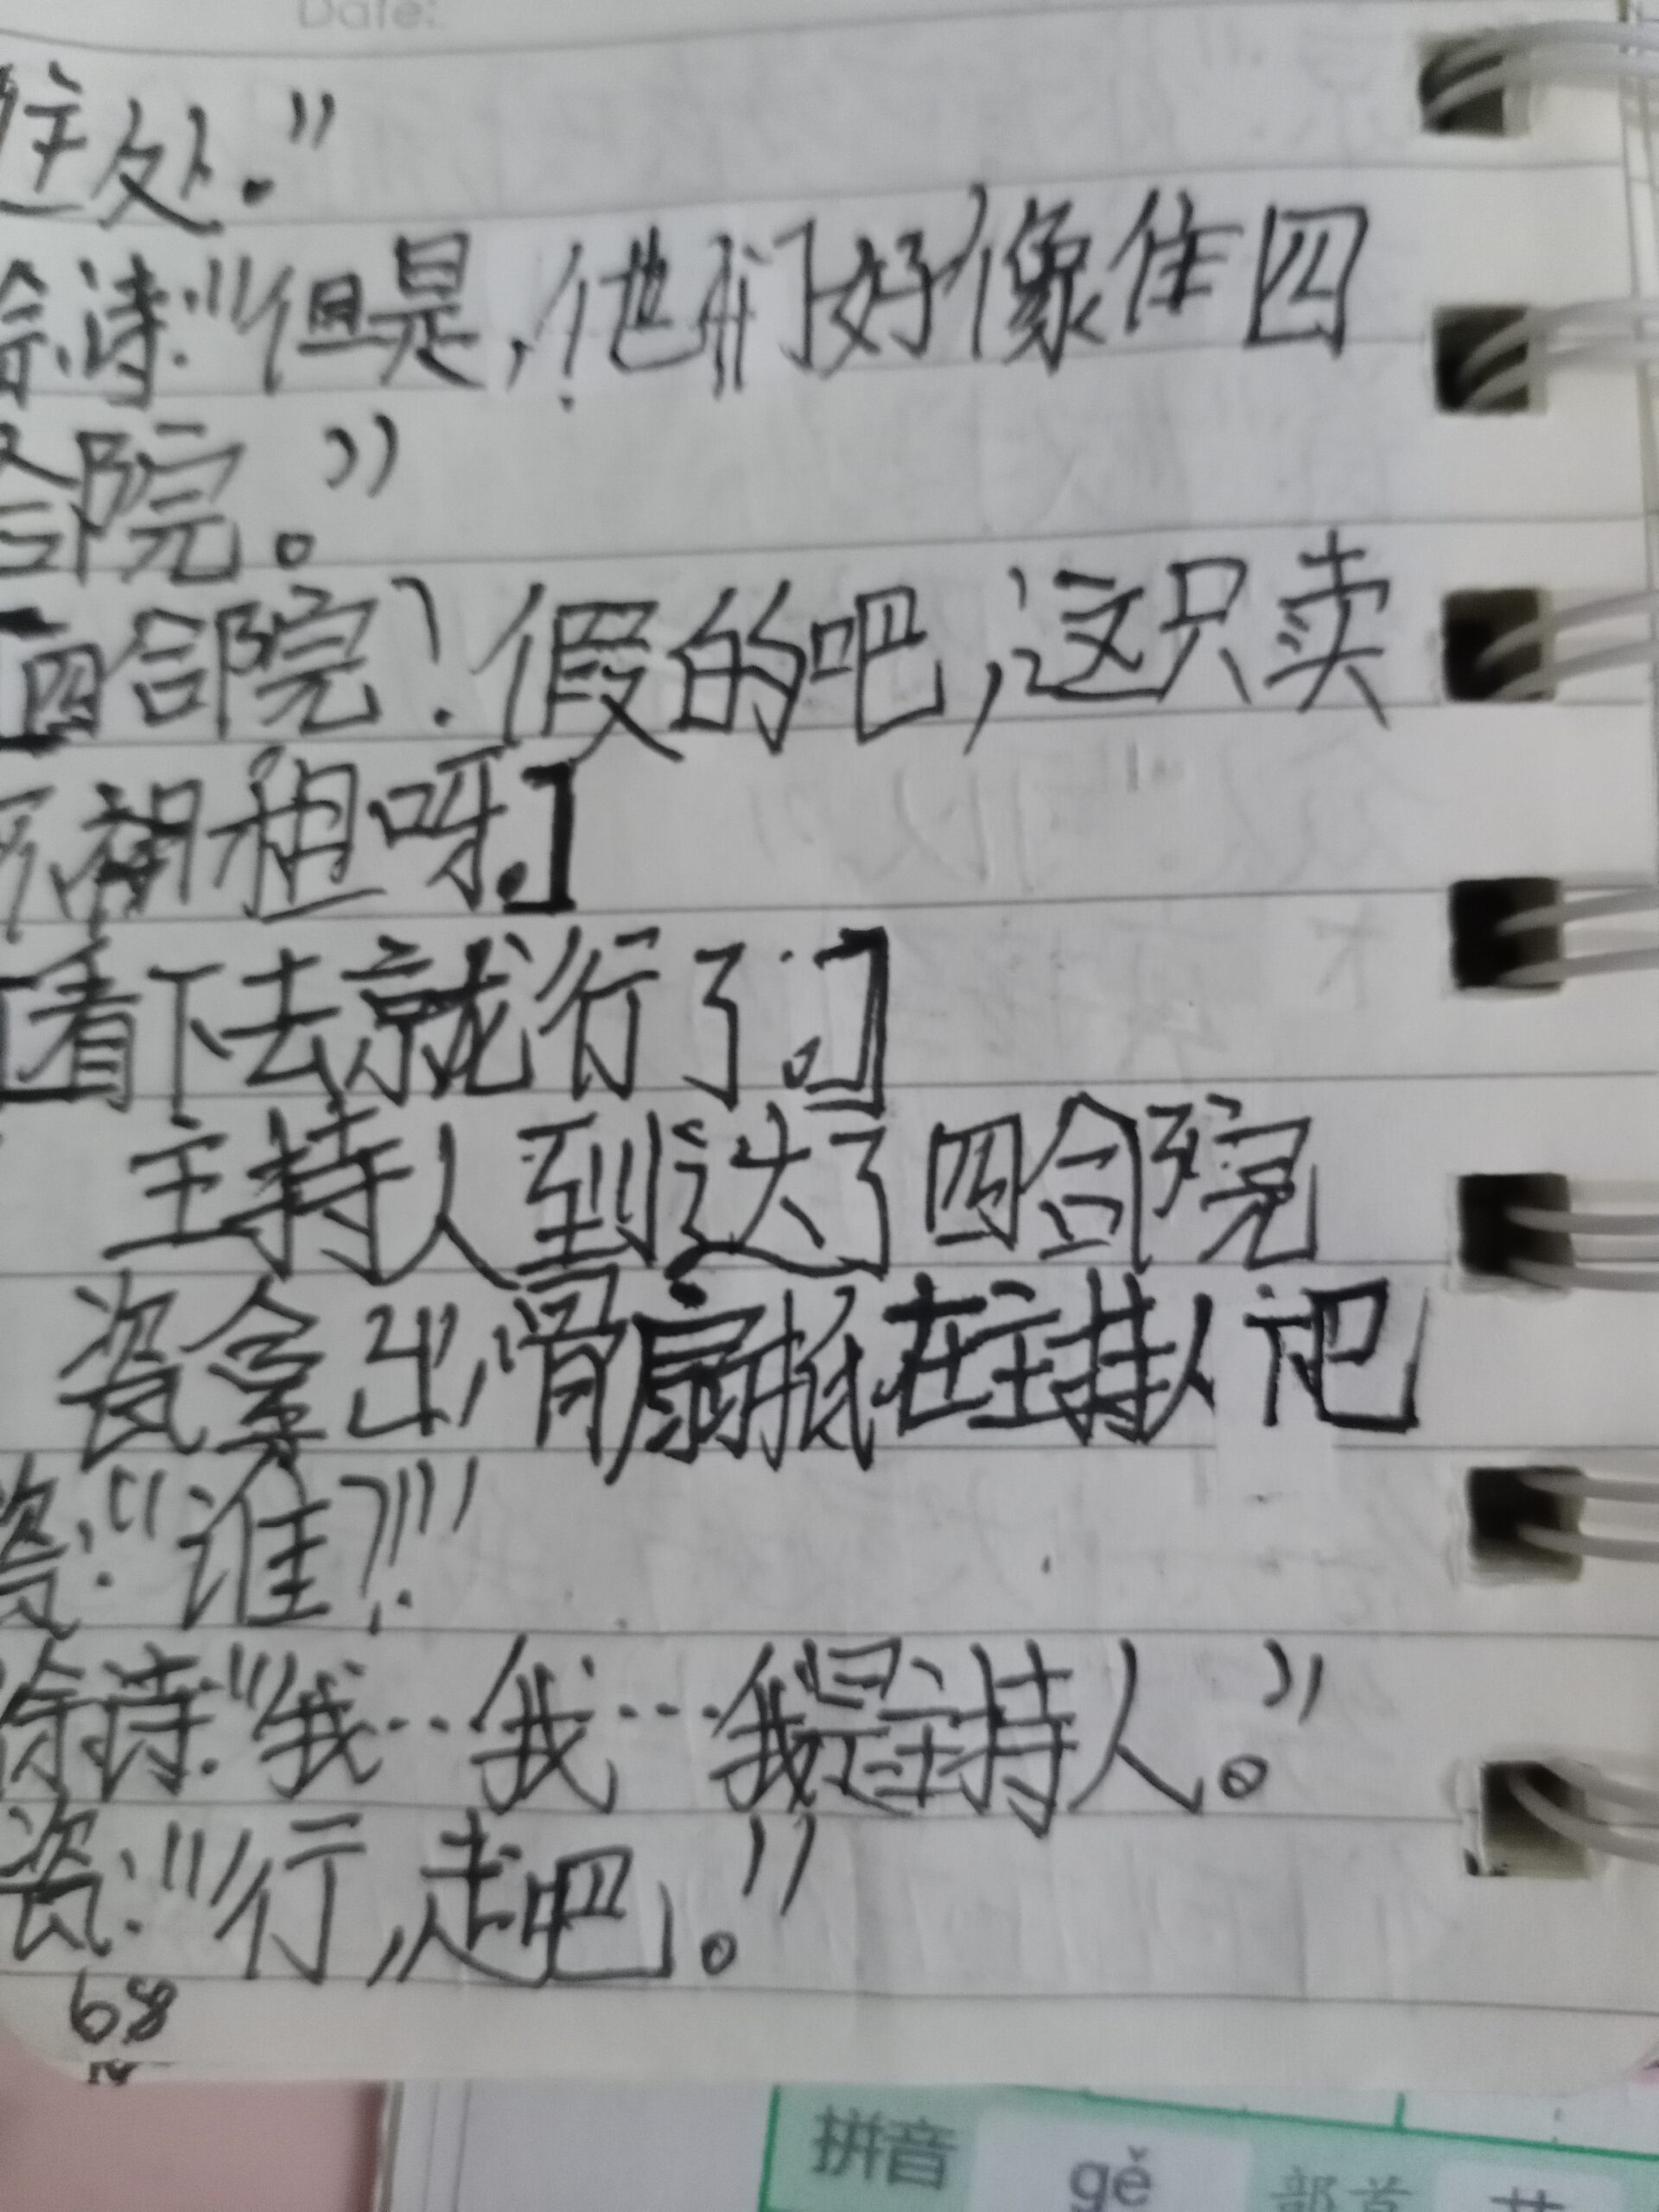 Date:
住处."
徐诗:"但是,他们好像住四
合院。"
[四合院?假的吧,这只卖
不租呀.]
[看下去就行了.]
主持人到达了四合院
瓷拿出骨扇抵在主持人下巴
瓷:"谁?!"
徐诗:"我…我…我是主持人。"
瓷:"行,走吧。"
68
拼音 gě 部首